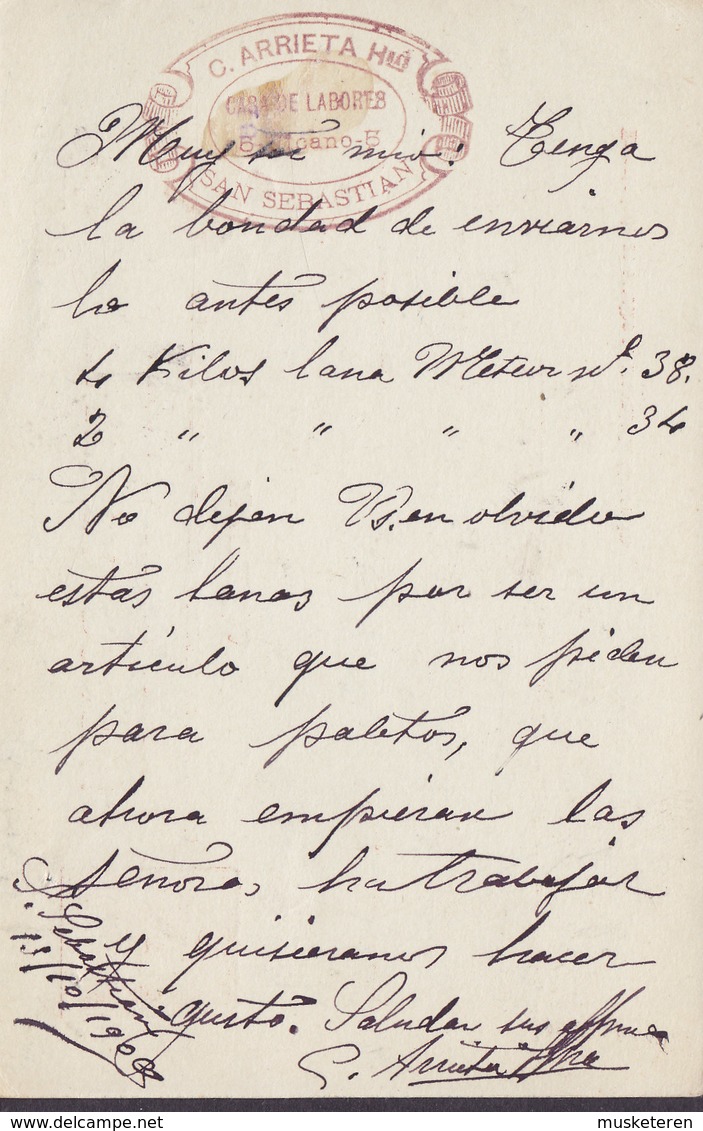 C. ARRIETA Hno
CASA DE LABORES
SAN SEBASTIAN
Muy mio: Tenga
la bondad de enviarnos
lo antes posible
4 Kilos lana Meteor nº. 38.
2 " " " " 34
No dejen Vs. en olvido
estas lanas por ser un
artículo que nos piden
para paletos, que
ahora empiezan las
señoras, ha trabajar
y quisieramos hacer
gusto. Saludan sus affmos
C. Arrieta Hno
S. Sebastian
musketeren